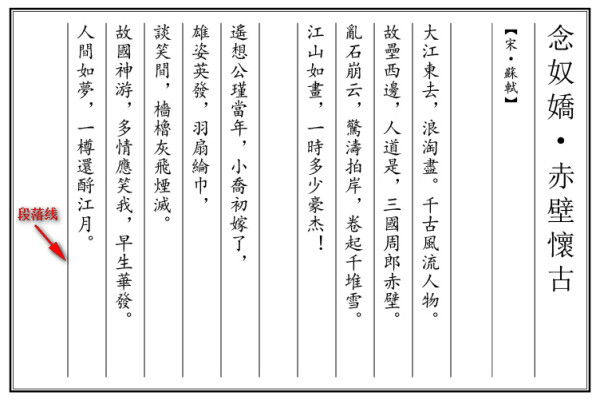 念奴嬌・赤壁懷古
【宋・蘇軾】
大江東去，浪淘盡。千古風流人物。
故壘西邊，人道是，三國周郎赤壁。
亂石崩云，驚濤拍岸，卷起千堆雪。
江山如畫，一時多少豪杰！
遙想公瑾當年，小喬初嫁了，
雄姿英發，羽扇綸巾，
談笑間，檣櫓灰飛煙滅。
故國神游，多情應笑我，早生華發。
人間如夢，一樽還酹江月。
段落线